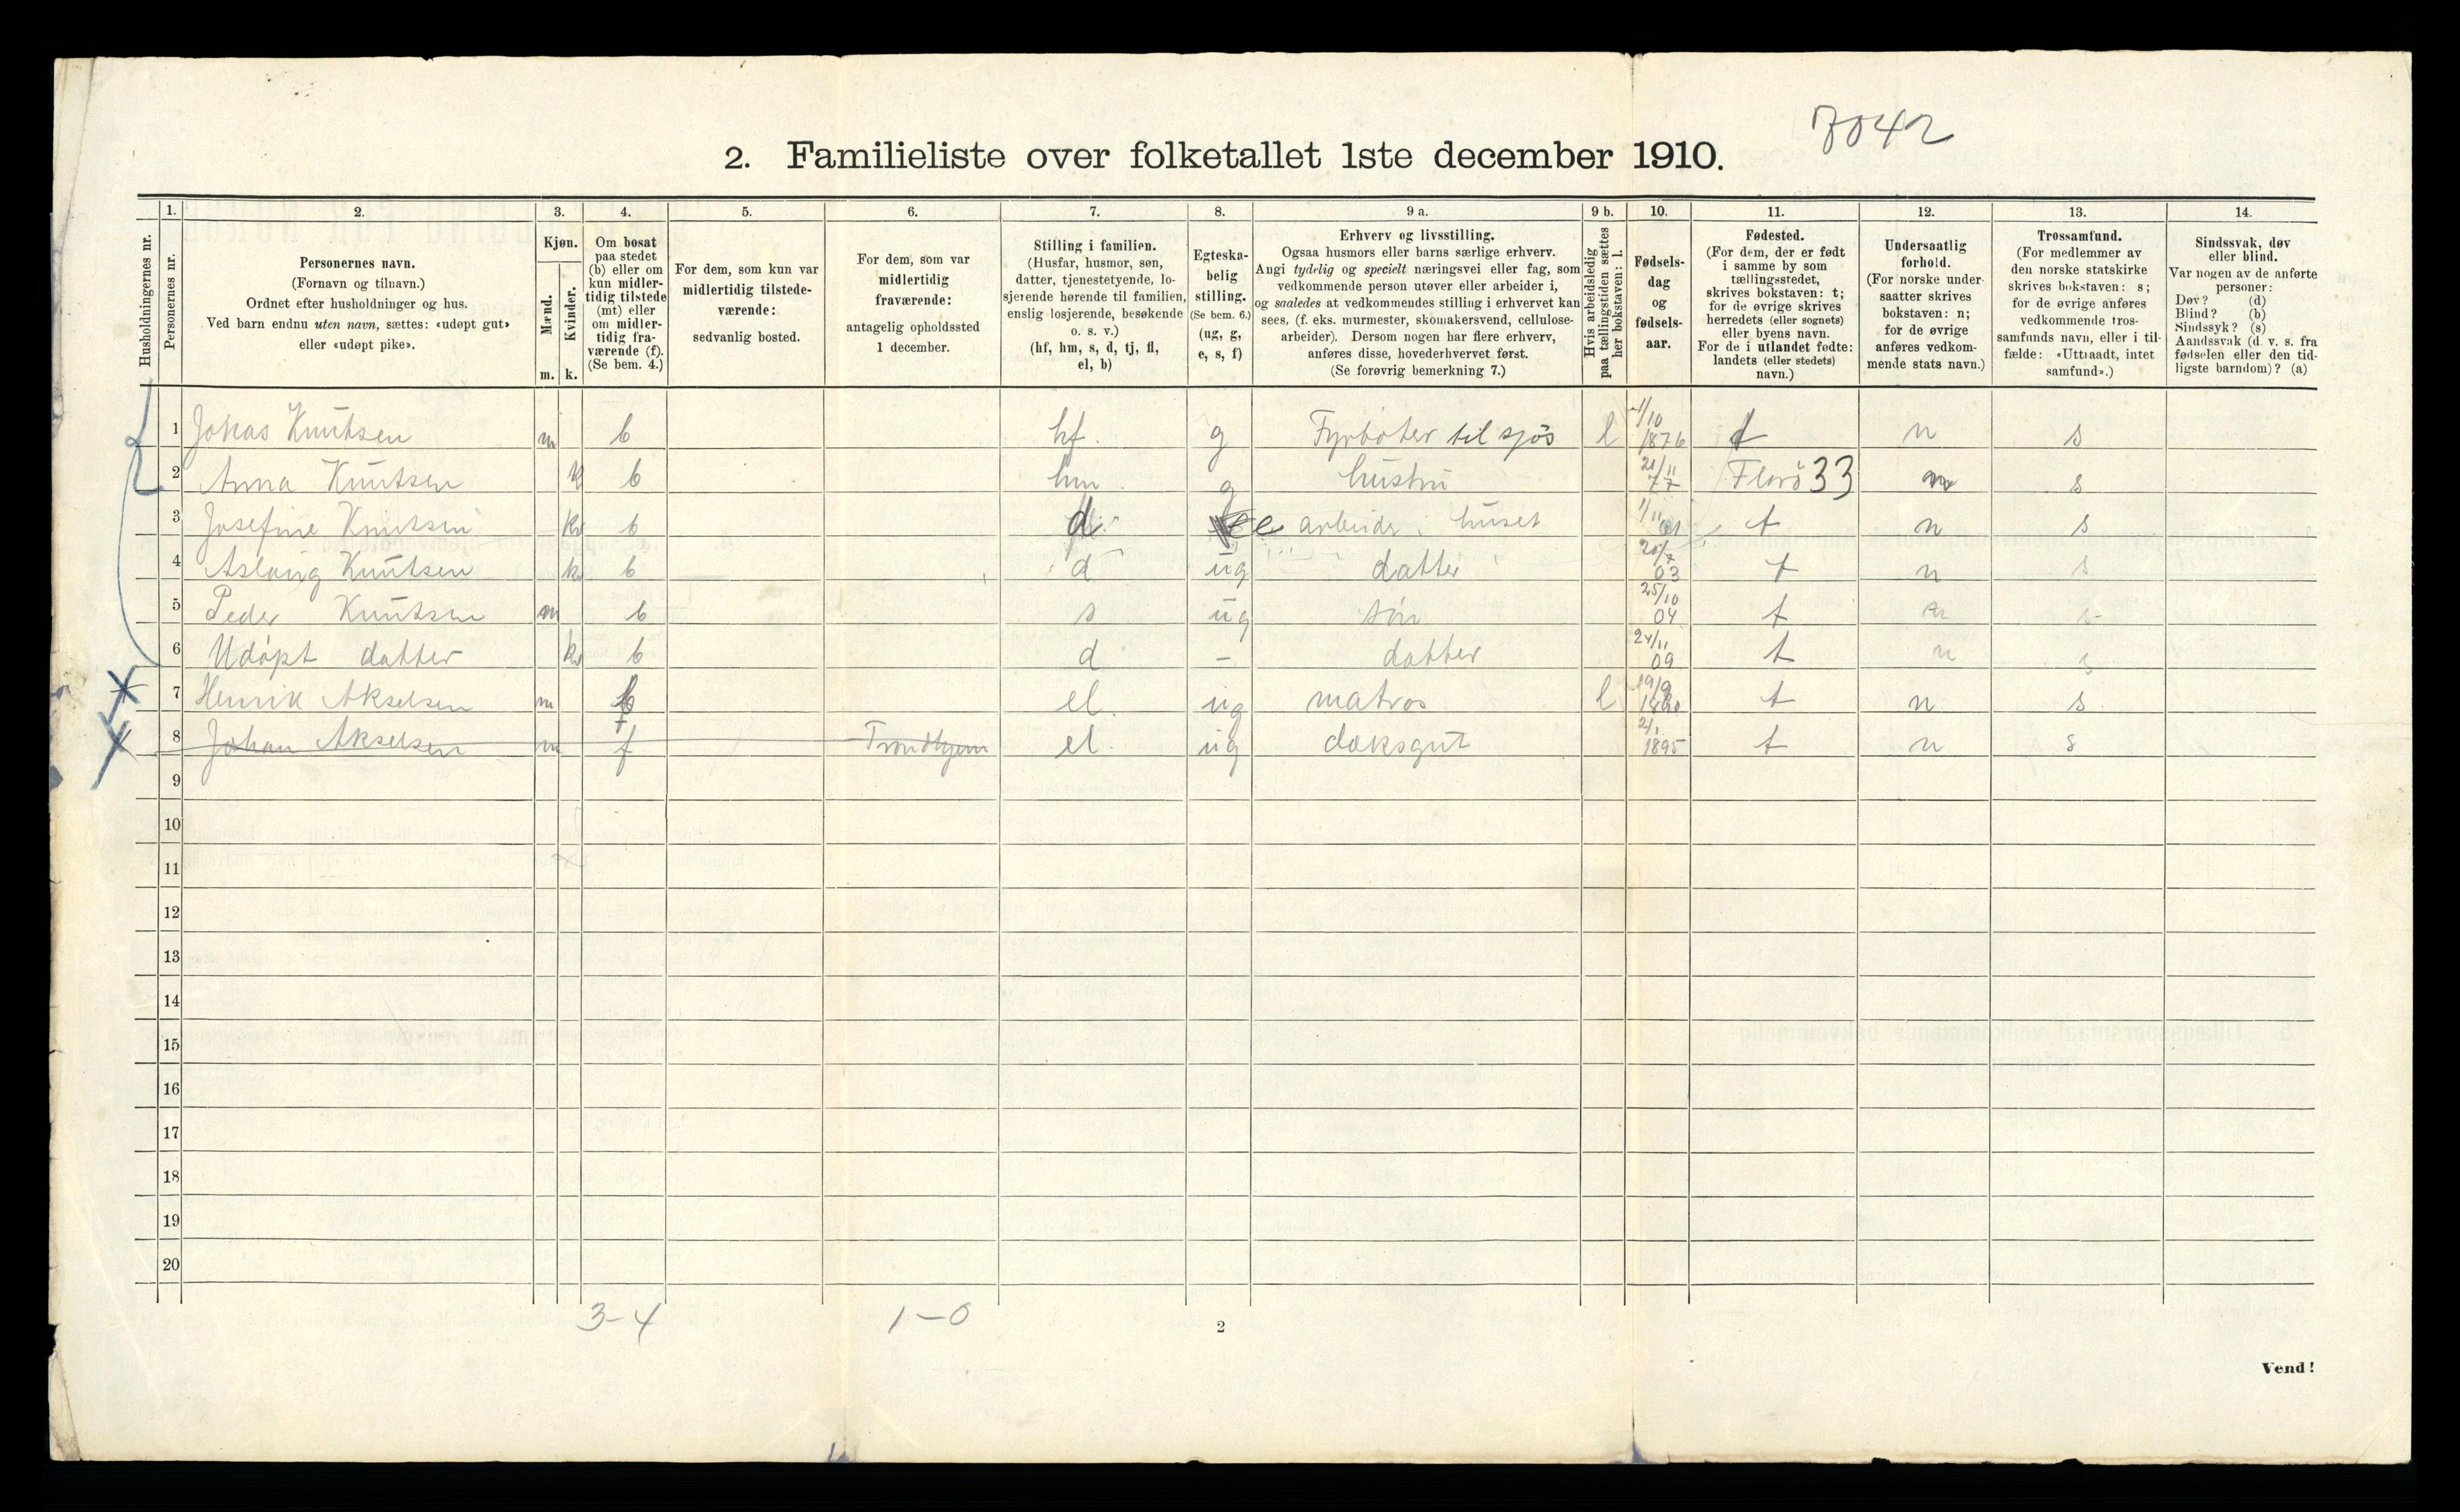 7042
2. Familieliste over folketallet 1ste december 1910.
Husholdningernes nr.
1. 2. 3. 4. 5. 6. 7. 8. 9 a. 9 b. 10. 11. 12. 13. 14.
Personernes nr.
Personernes navn.
(Fornavn og tilnavn.)
Ordnet efter husholdninger og hus.
Ved barn endnu uten navn, sættes: «udøpt gut»
eller «udøpt pike».
Kjøn.
Mænd.
m.
Kvinder.
k.
Om bosat
paa stedet
(b) eller om
kun midler-
tidig tilstede
(mt) eller
om midler-
tidig fra-
værende (f).
(Se bem. 4.)
For dem, som kun var
midlertidig tilstede-
værende:
sedvanlig bosted.
For dem, som var
midlertidig
fraværende:
antagelig opholdssted
1 december.
Stilling i familien.
(Husfar, husmor, søn,
datter, tjenestetyende, lo-
sjerende hørende til familien,
enslig losjerende, besøkende
o. s. v.)
(hf, hm, s, d, tj, fl,
el, b)
Egteska-
belig
stilling.
(Se bem. 6.)
(ug, g,
e, s, f)
Erhverv og livsstilling.
Ogsaa husmors eller barns særlige erhverv.
Angi tydelig og specielt næringsvei eller fag, som
vedkommende person utøver eller arbeider i,
og saaledes at vedkommendes stilling i erhvervet kan
sees, (f. eks. murmester, skomakersvend, cellulose-
arbeider). Dersom nogen har flere erhverv,
anføres disse, hovederhvervet først.
(Se forøvrig bemerkning 7.)
Hvis arbeidsledig
paa tællingstiden sættes
her bokstaven: l.
Fødsels-
dag
og
fødsels-
aar.
Fødested.
(For dem, der er født
i samme by som
tællingsstedet,
skrives bokstaven: t;
for de øvrige skrives
herredets (eller sognets)
eller byens navn.
For de i utlandet fødte:
landets (eller stedets)
navn.)
Undersaatlig
forhold.
(For norske under-
saatter skrives
bokstaven: n;
for de øvrige
anføres vedkom-
mende stats navn.)
Trossamfund.
(For medlemmer av
den norske statskirke
skrives bokstaven: s;
for de øvrige anføres
vedkommende tros-
samfunds navn, eller i til-
fælde: «Uttraadt, intet
samfund».)
Sindssvak, døv
eller blind.
Var nogen av de anførte
personer:
Døv? (d)
Blind? (b)
Sindssyk? (s)
Aandssvak (d. v. s. fra
fødselen eller den tid-
ligste barndom)? (a)
1 Jonas Knutsen m b hf. g Fyrböter til sjös l 1/10 1876 t n s
2 Anna Knutsen k b hm. g hustru 21/11 77 Florö 33 n s
3 Josefine Knutsen k b d e arbeider i huset 1/11 01 t n s
4 Aslaug Knutsen k b d ug datter 03 t n s
5 Peder Knutsen m b s ug sön 25/10 04 t n s
6 Udöpt datter k b d – datter 24/11 09 t n s
7 Henrik Akselsen m f el. ug matros l 19/9 t n s
8 Johan Akselsen m f Trondhjem el. ug daksgut 2/1 1895 t n s
9
10
11
12
13
14
15
16
17
18
19
20
3-4 1-0
2
Vend!